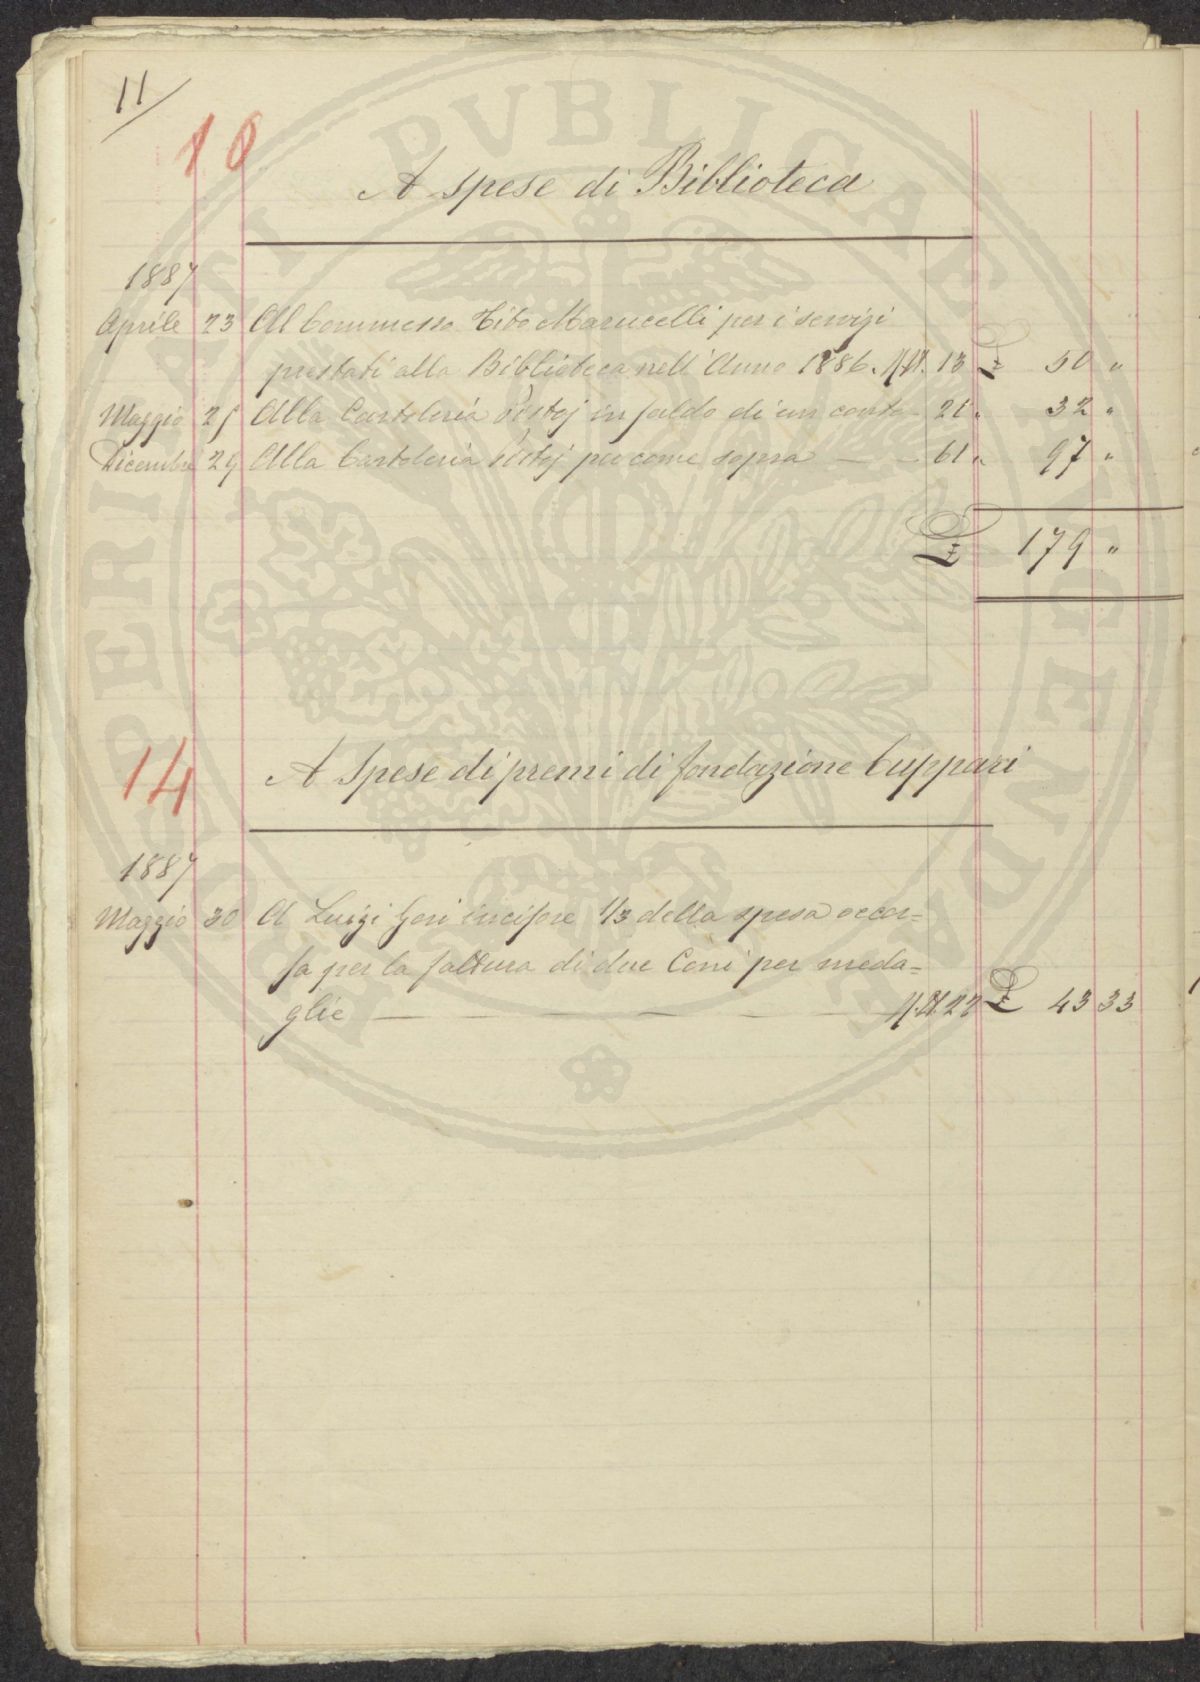 11
10
A spese di Biblioteca
1887
Aprile 23 Al Commesso Tito Marucelli per i servizi
prestati alla Biblioteca nell'Anno 1886. M.N. 13 £ 50 "
Maggio 25 Alla Cartoleria Pistoj in saldo di un conto - 21 " 32 "
Dicembre 29 Alla Cartoleria Pistoj per come sopra — - 61 " 97 "
£ 179 "
14
A Spese di premi di fondazione Cuppari
1887
Maggio 30 A Luigi Gori incisore 1/3 della spesa occor=
sa per la fattura di due Coni per meda=
glie — — — — M.N. 22 £ 43 33
PERITI PVBLICAE